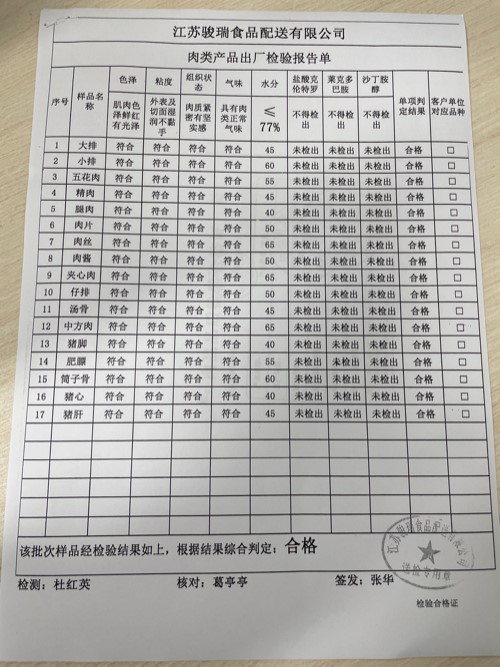 江苏骏瑞食品配送有限公司
肉类产品出厂检验报告单
序号 样品名称 色泽 粘度 组织状态 气味 水分 盐酸克伦特罗 莱克多巴胺 沙丁胺醇 单项判定结果 客户单位对应品种
肌肉色泽鲜红有光泽 外表及切面湿润不黏手 肉质紧密有坚实感 具有肉类正常气味 ≤77% 不得检出 不得检出 不得检出
1 大排 符合 符合 符合 符合 45 未检出 未检出 未检出 合格 □
2 小排 符合 符合 符合 符合 60 未检出 未检出 未检出 合格 □
3 五花肉 符合 符合 符合 符合 55 未检出 未检出 未检出 合格 □
4 精肉 符合 符合 符合 符合 45 未检出 未检出 未检出 合格 □
5 腿肉 符合 符合 符合 符合 40 未检出 未检出 未检出 合格 □
6 肉片 符合 符合 符合 符合 50 未检出 未检出 未检出 合格 □
7 肉丝 符合 符合 符合 符合 65 未检出 未检出 未检出 合格 □
8 肉酱 符合 符合 符合 符合 50 未检出 未检出 未检出 合格 □
9 夹心肉 符合 符合 符合 符合 65 未检出 未检出 未检出 合格 □
10 仔排 符合 符合 符合 符合 50 未检出 未检出 未检出 合格 □
11 汤骨 符合 符合 符合 符合 45 未检出 未检出 未检出 合格 □
12 中方肉 符合 符合 符合 符合 65 未检出 未检出 未检出 合格 □
13 猪脚 符合 符合 符合 符合 40 未检出 未检出 未检出 合格 □
14 肥膘 符合 符合 符合 符合 55 未检出 未检出 未检出 合格 □
15 筒子骨 符合 符合 符合 符合 60 未检出 未检出 未检出 合格 □
16 猪心 符合 符合 符合 符合 40 未检出 未检出 未检出 合格 □
17 猪肝 符合 符合 符合 符合 45 未检出 未检出 未检出 合格 □
该批次样品经检验结果如上，根据结果综合判定：合格
江苏骏瑞食品配送有限公司
检测：杜红英 核对：葛亭亭 签发：张华
检验合格证